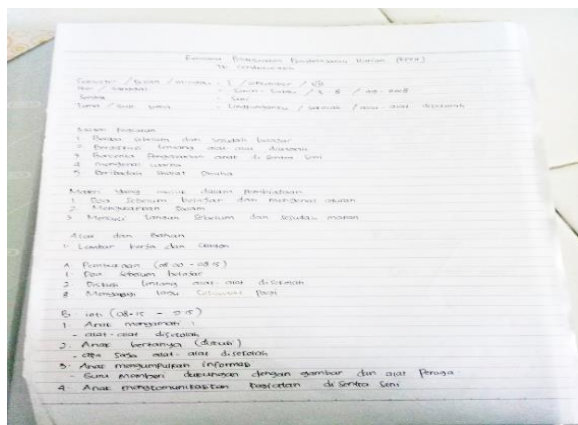 Rencana Pelaksanaan Pembelajaran Harian (RPPH)
TK
Semester / bulan / minggu : 1 / September /
Hari / tanggal : Senin - Sabtu / 3 - 8 /
Sentra : Seni
Tema / sub tema : Lingkunganku / sekolah / alat-alat disekolah
Materi Kegiatan
1. Berdoa sebelum dan sesudah belajar
2. Berdiskusi tentang alat-alat disekolah
3. Bercerita Pengalaman anak di Sentra Seni
4. mengenal warna
5. Beribadah Sholat Dhuha
Materi Yang masuk dalam Pembiasaan
1. Doa Sebelum belajar dan mengenal aturan
2. Mengucapkan Salam
3. Mencuci tangan Sebelum dan Sesudah makan
Alat dan Bahan
1. Lembar kerja dan crayon
A. Pembukaan (08.00 - 08.15)
1. Doa Sebelum belajar
2. Diskusi tentang alat-alat disekolah
3. Menyanyi lagu Selamat Pagi
B. inti (08-15 - 9.15)
1. Anak mengamati :
- alat-alat disekolah
2. Anak bertanya (diskusi)
- apa saja alat-alat disekolah
3. Anak mengumpulkan informasi
- Guru Memberi dukungan dengan gambar dan alat Peraga
4. Anak mengkomunikasikan kegiatan di Sentra Seni